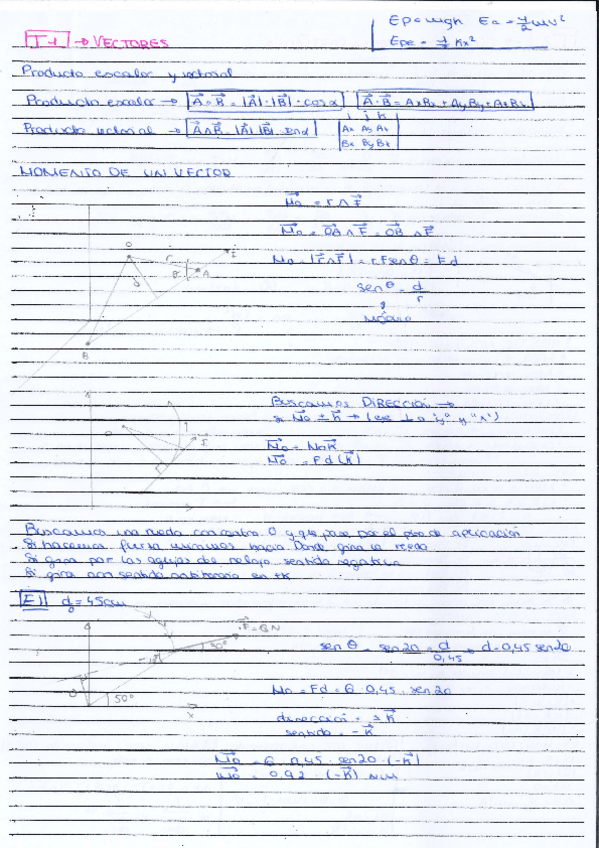 Ep = mgh Ec = 1/2 mv²
Epe = 1/2 Kx²
T-1 → VECTORES
Producto escalar y vectorial
Producto escalar → A∘B = |A|·|B|·cosα A·B = AxBx + AyBy + AzBz
Producto vectorial → A∧B = |A| |B| senα
i j k
Ax Ay Az
Bx By Bz
MOMENTO DE UN VECTOR
Mo = r ∧ F
Mo = OA ∧ F = OB ∧ F
Mo = |r ∧ F| = r F sen θ = F d
sen θ = d/r
Módulo
O
r
θ
A
d
B
Buscamos DIRECCIÓN →
Mo = Mo K
Mo = Fd (K)
O
Buscamos una rueda con centro O y que pase por el pto de aplicación
Si hacemos fuerza miramos hacia Donde gira la rueda
Si gira por las agujas del reloj sentido negativo
Si gira con sentido antihorario es +K
E1 d = 45 cm
F = 6 N
30°
50°
O
x
sen θ = sen 20 = d/0,45 → d = 0,45 sen 20
Mo = Fd = 6 · 0,45 · sen 20
dirección = ± K
sentido = - K
Mo = 6 · 0,45 · sen 20 · (-K)
Mo = 0,92 · (-K) N·m